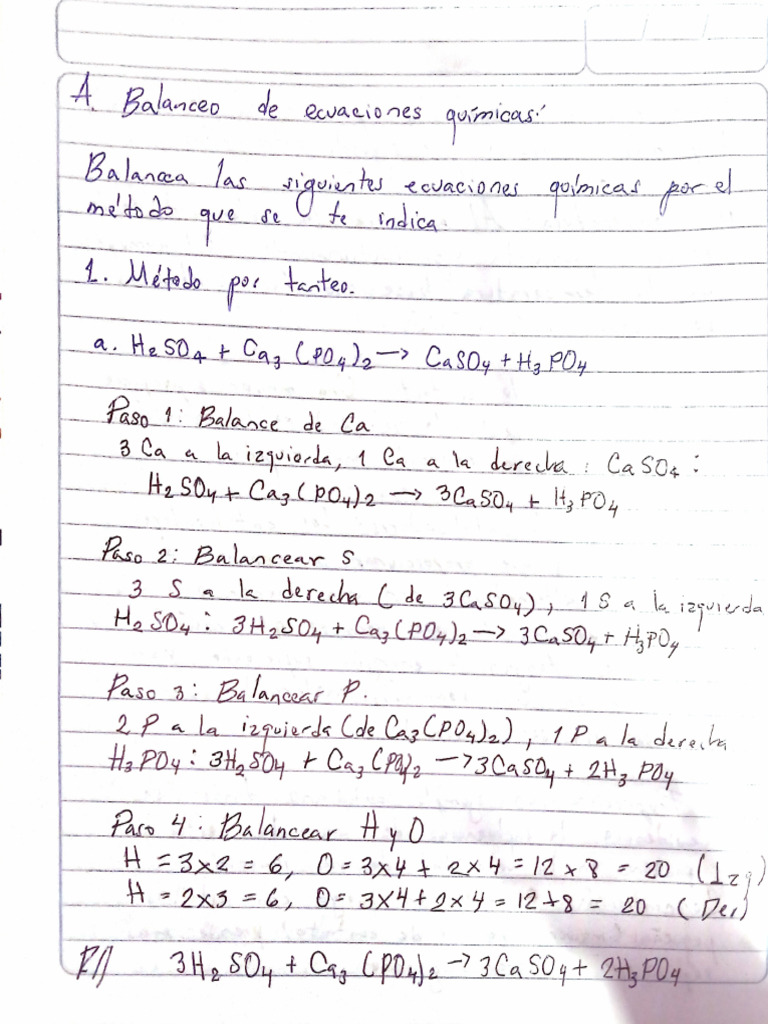 A. Balanceo de ecuaciones químicas:
Balancea las siguientes ecuaciones químicas por el
método que se te indica.
1. Método por tanteo.
a. H₂SO₄ + Ca₃(PO₄)₂ → CaSO₄ + H₃PO₄
Paso 1: Balance de Ca
3 Ca a la izquiorda, 1 Ca a la derecha: CaSO₄:
H₂SO₄ + Ca₃(PO₄)₂ → 3CaSO₄ + H₃PO₄
Paso 2: Balancear S.
3 S a la derecha (de 3CaSO₄), 1 S a la izquierda
H₂SO₄: 3H₂SO₄ + Ca₃(PO₄)₂ → 3CaSO₄ + H₃PO₄
Paso 3: Balancear P.
2 P a la izquierda (de Ca₃(PO₄)₂), 1 P a la derecha
H₃PO₄: 3H₂SO₄ + Ca₃(PO₄)₂ → 3CaSO₄ + 2H₃PO₄
Paso 4: Balancear H y O
H = 3×2 = 6, O = 3×4 + 2×4 = 12 × 8 = 20 (Izq)
H = 2×3 = 6, O = 3×4 + 2×4 = 12 + 8 = 20 (Der)
R// 3H₂SO₄ + Ca₃(PO₄)₂ → 3CaSO₄ + 2H₃PO₄